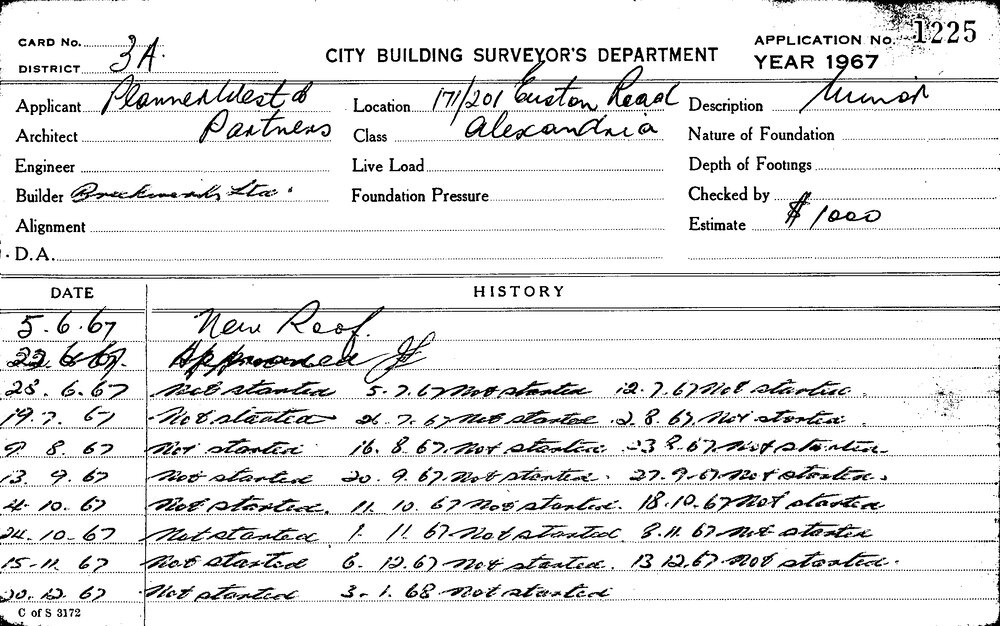 CARD No. 3A. CITY BUILDING SURVEYOR'S DEPARTMENT APPLICATION No. 1225
DISTRICT YEAR 1967
Applicant Planner West & Location 171/201 Euston Road Description Minor
Architect Partners Class Alexandria Nature of Foundation
Engineer Live Load Depth of Footings
Builder Ltd. Foundation Pressure Checked by
Alignment Estimate $1000
D.A.
DATE HISTORY
5.6.67 New Roof.
22.6.67. Approved
28.6.67 Not started 5.7.67 Not started 12.7.67 Not started
19.7.67 Not started 26.7.67 Not started 2.8.67 Not started
9 8. 67 Not started 16.8.67 Not started 23.8.67 Not started
13.9.67 Not started 20.9.67 Not started. 27.9.67 Not started.
4.10.67 Not started. 11.10.67 Not started. 18.10.67 Not started
24.10.67 Not started 1 11.67 Not started 8.11.67 Not started
15.11.67 Not started 6.12.67 Not started. 13 12.67 Not started.
20.12.67 Not started 3.1.68 Not started
C of S 3172